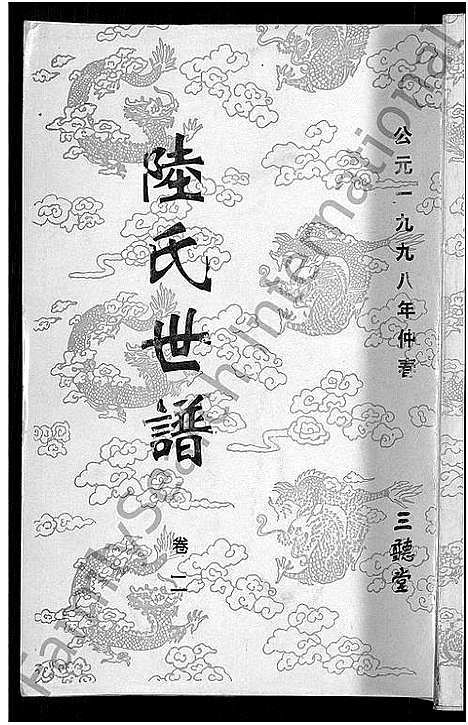 公元一九九八年仲春
三聽堂
陸氏世譜
卷二
FamilySearch International